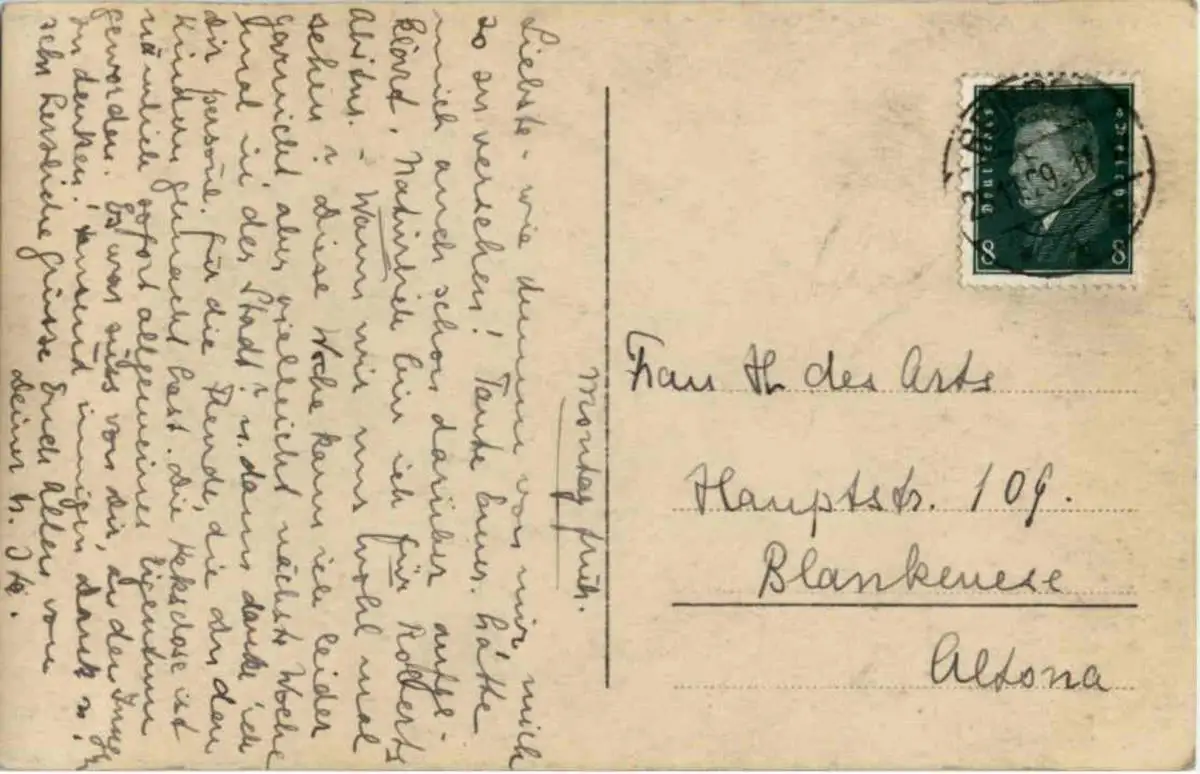 Montag früh.
Liebste - wie dumm von mir mich
so zu versehen! Tante Emm. hätte
mich auch schon darüber aufge-
klärt. Natürlich bin ich für Robberts
Abitur. - Wann wir uns wohl mal
sehen? Diese Woche kann ich leider
garnicht, aber vielleicht nächste Woche
mal in der Stadt? u. dann danke ich
Dir persönl. für die Freude, die du den
Kindern gemacht hast. Die Keksdose ist
nämlich sofort allgemeines Eigentum
geworden. Es war süss von Dir, an den Jungen
zu denken! Tausend innigen Dank u.
sehr herzliche Grüsse Euch Allen von
Deiner
Frau H. des Arts
Hauptstr. 109.
Blankenese
Altona
Deutsches Reich
8 8